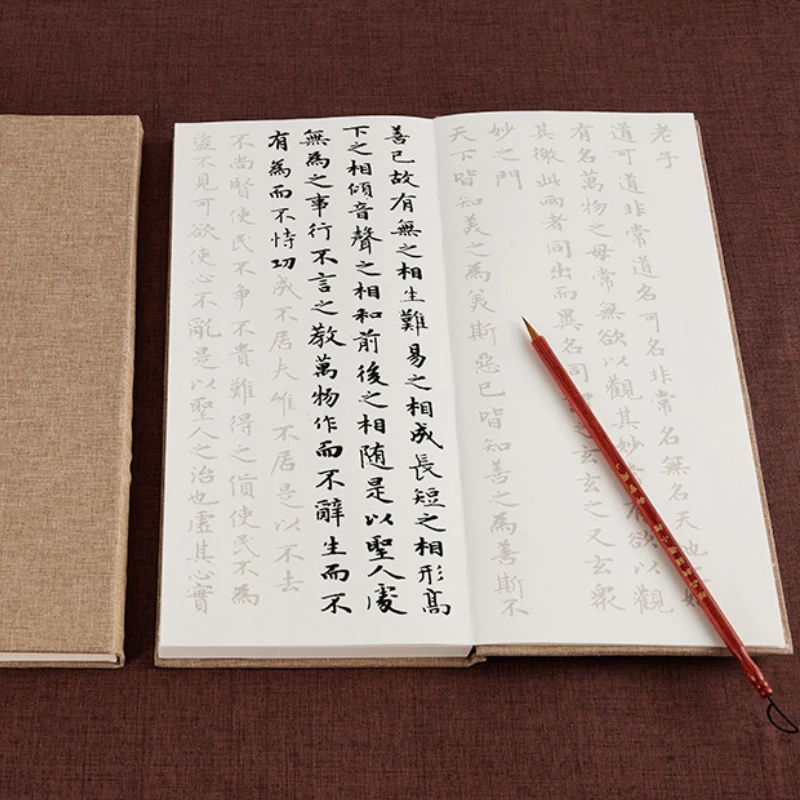 老子
道可道非常道名可名非常名無名天地始
有名萬物之母常無欲以觀其妙有欲以觀
其徼此兩者同出而異名同之玄玄之又玄眾
妙之門
天下皆知美之為美斯惡已皆知善之為善斯不
善已故有無之相生難易之相成長短之相形高
下之相傾音聲之相和前後之相随是以聖人處
無為之事行不言之教萬物作而不辭生而不
有為而不恃功成不居夫唯不居是以不去
不尚賢使民不争不貴難得之貨使民不為
盜不見可欲使心不亂是以聖人之治也虛其心實